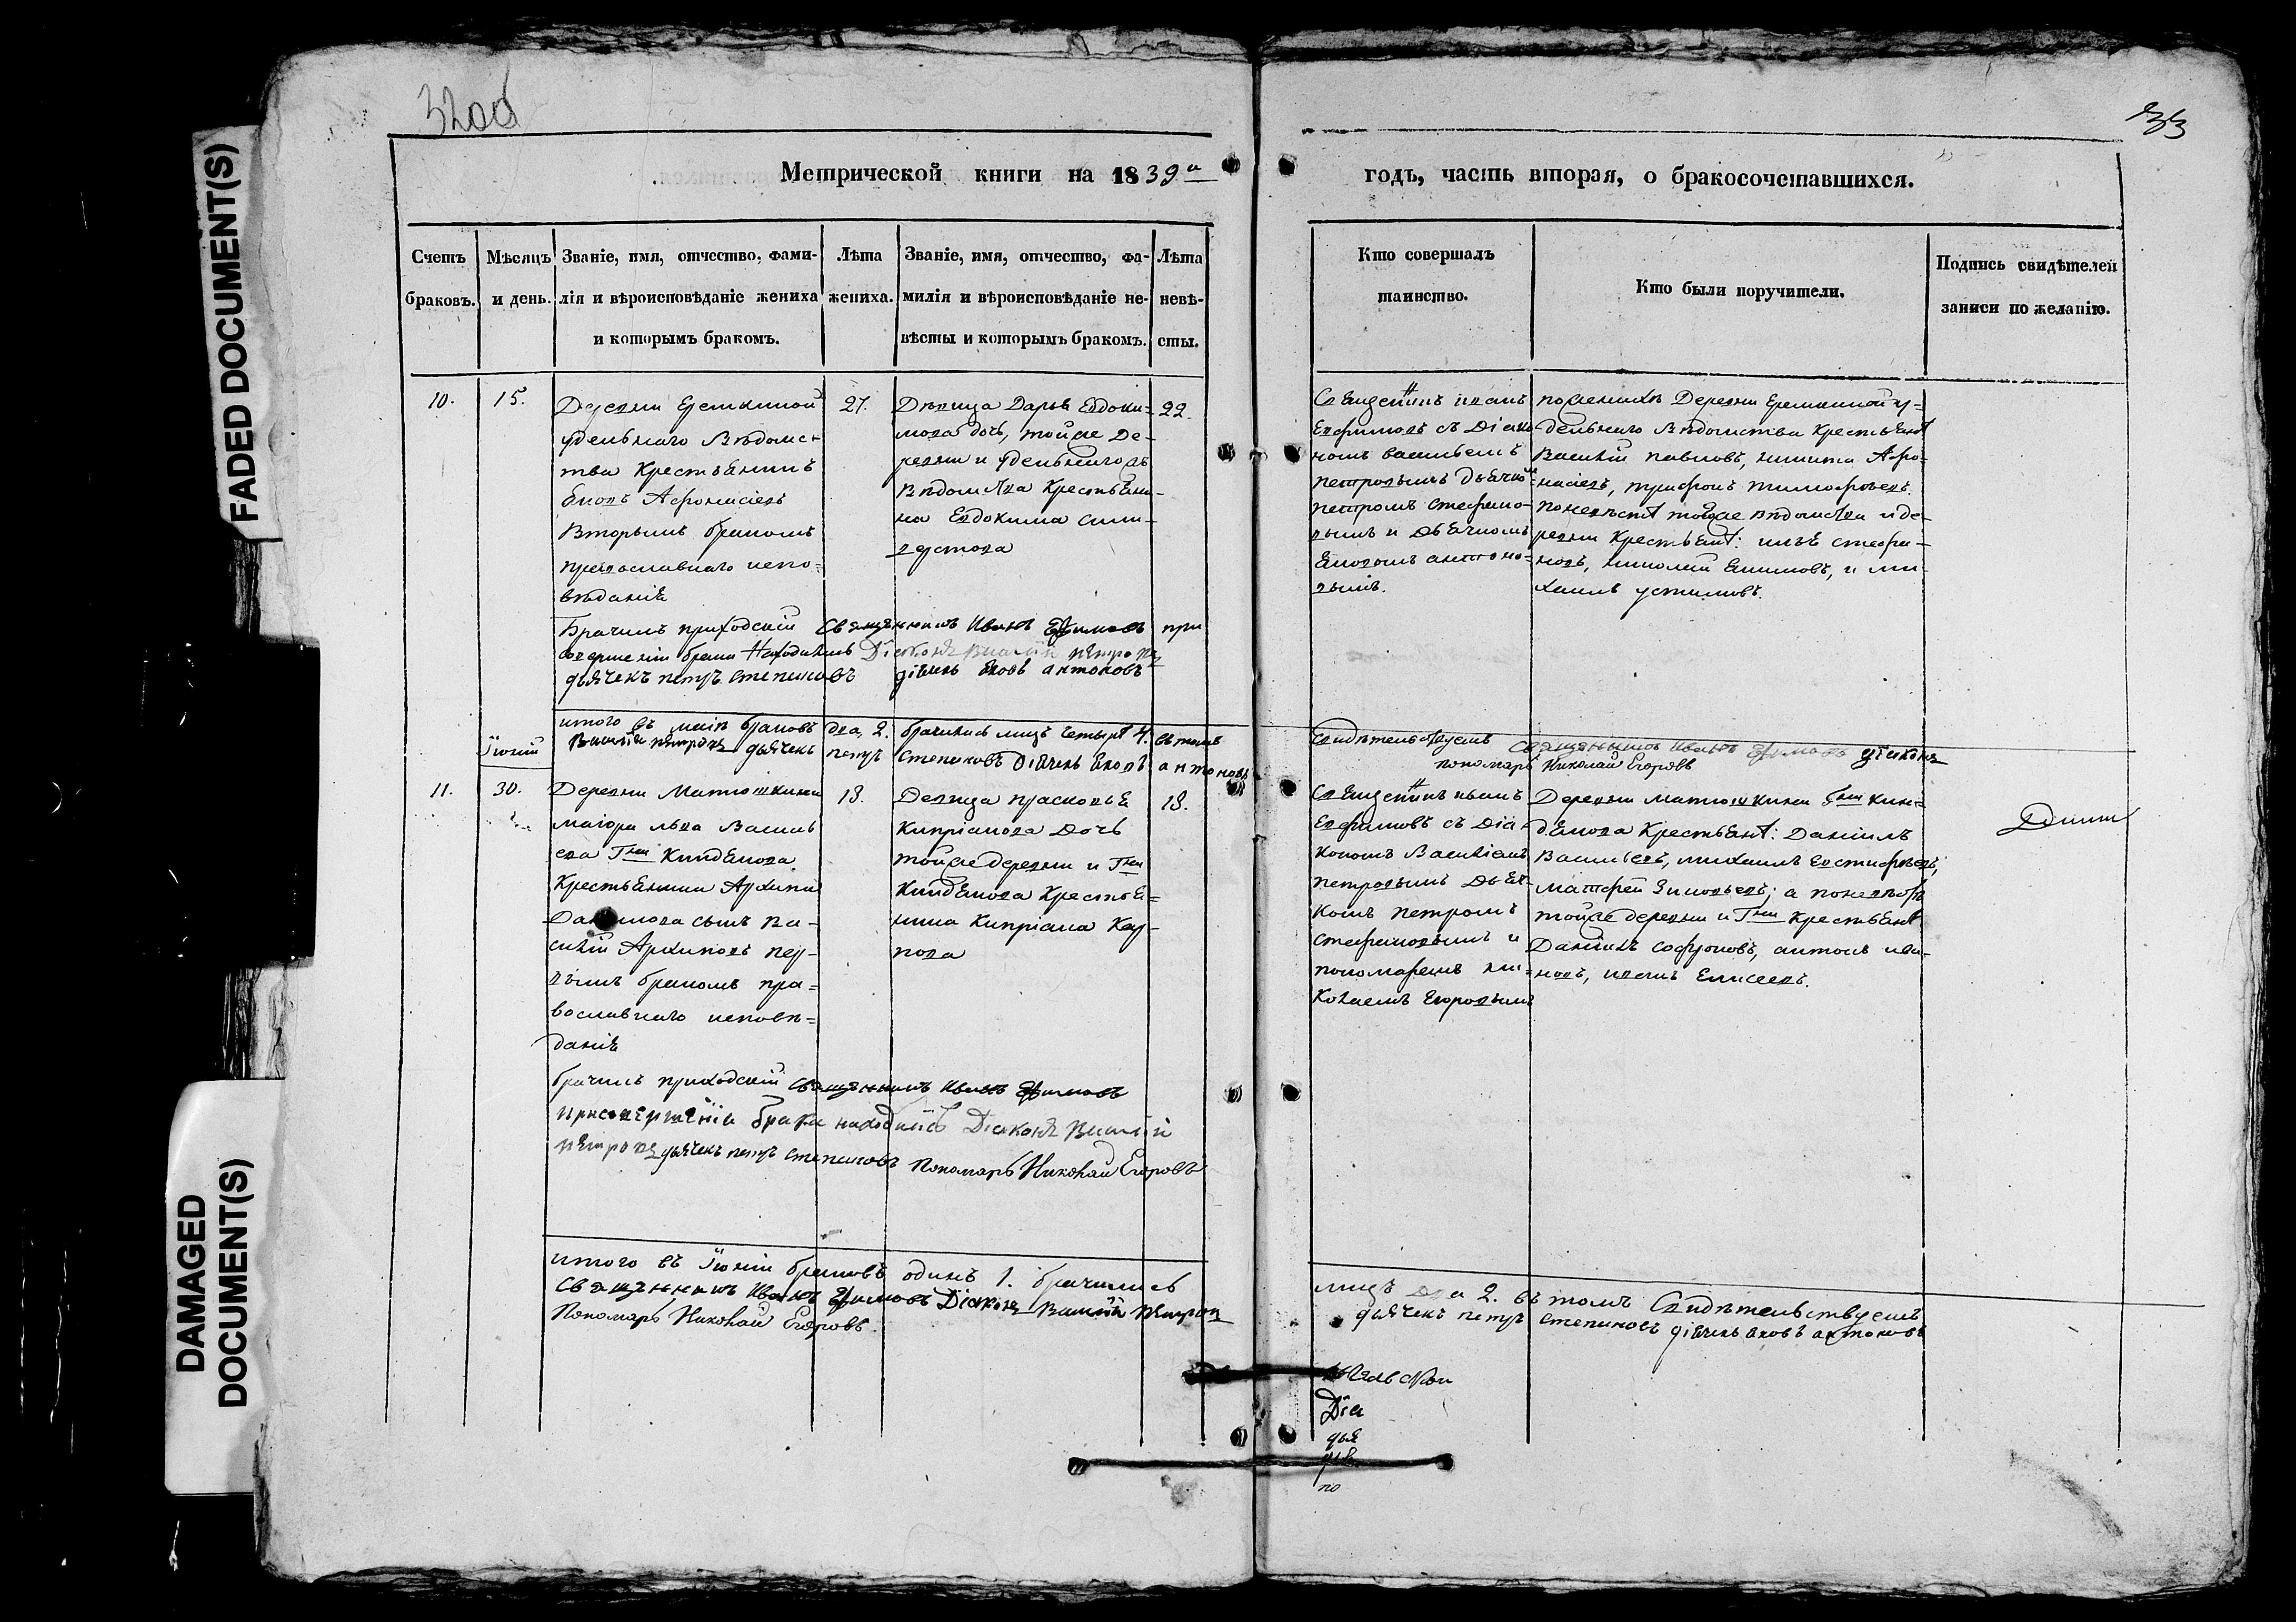 FADED DOCUMENT(S)
DAMAGED
DOCUMENT(S)
3200
33
Метрической книги на 1839 и
годъ, часть вторая, о бракосочетавшихся.
Счетъ
браковъ.
Мѣсяцъ
и день.
Званіе, имя, отчество, фами-
лія и вѣроисповѣданіе жениха
и которымъ бракомъ.
Лѣта
жениха.
Званіе, имя, отчество, фа-
милія и вѣроисповѣданіе не-
вѣсты и которымъ бракомъ.
Лѣта
невѣ-
сты.
Кто совершалъ
таинство.
Кто были поручители.
Подпись свидѣтелей
записи по желанію.
10.
15.
Деревни Еремкиной
удельнаго Вѣдомс-
тва Крестьянинъ
Яковъ Афонасіевъ
Вторымъ бракомъ
православнаго испо-
вѣданія
27.
Девица Дарья Евдоки-
мова дочь, тойже де-
ревни и удельнаго
вѣдомства крестьяни-
на Евдокима Сили-
верстова
22.
Священникъ иванъ
Евфимовъ съ Діако-
номъ васильемъ
петровымъ дьячкомъ
петромъ стефано-
вымъ и дьячкомъ
Яковомъ антоно-
вымъ.
по женихѣ Деревни Еремкиной у-
дельнаго вѣдомства крестьяне
Василій павловъ, никита Афо-
насіевъ, трифонъ тимофѣевъ.
по невѣсте тойже вѣдомства и де-
ревни крестьяне: илья стефа-
новъ, николай Екимовъ, и ми-
хаилъ устимовъ.
Брачилъ приходскій Священникъ Иванъ Ефимовъ при
совершеніи брака Находились Діаконъ Василій петровъ
дьячекъ петръ степановъ дьячекъ яковъ антоновъ
итого въ маіѣ браковъ два, 2. брачились лицъ четыре 4. въ томъ
Свидѣтельствуемъ Священникъ Иванъ Ефимовъ діаконъ
Василій петровъ дьячекъ петръ степановъ дьячекъ яковъ антоновъ
пономарь Николай Егоровъ
Іюній
11.
30.
Деревни Матюшкина
маіора льва Василь
ева Гна Киндякова
Крестьянина Архипа
Данилова сынъ Ва-
силій Архиповъ пер-
вымъ бракомъ пра-
вославнаго исповѣ-
данія
18.
Девица прасковья
Кипріанова Дочь
тойже деревни и Гна
Киндякова Крестья-
нина Кипріана Кар-
пова
18.
Священникъ иванъ
Евфимовъ съ Діа-
кономъ Василіемъ
петровымъ Дьяч-
комъ петромъ
стефановымъ и
пономаремъ ни-
колаемъ Егоровымъ
Деревни матюшкина Гна Кин-
дякова Крестьяне: Даніилъ
Васильевъ, михаилъ Евстифѣевъ,
матфей Зиновьевъ; а по невѣсте
тойже деревни и Гна Крестьяне
Даніилъ Софроновъ, антонъ ива-
новъ, иванъ Елисеевъ.
брачилъ приходскій священникъ Иванъ Ефимовъ
при совершеніи брака находились Діаконъ Василій
петровъ дьячекъ петръ степановъ Пономарь Николай Егоровъ
итого въ Іюніи браковъ одинъ 1. брачились
лицъ два 2. въ томъ Свидѣтельствуемъ
Священникъ Иванъ Ефимовъ Діаконъ Василій петровъ
дьячекъ петръ степановъ дьячекъ яковъ антоновъ
Пономарь Николай Егоровъ.
Діа
дья
дья
по